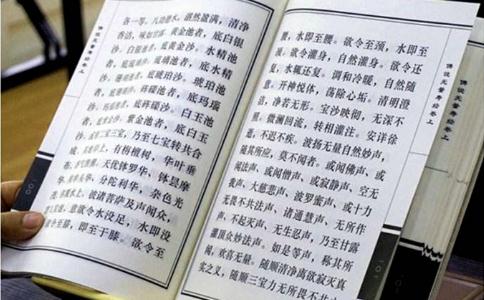 各一等，八功德水，湛然盈满，清净
香洁，味如甘露。黄金池者，底白银
沙。白银池者，底黄金沙。水精池
者，底琉璃沙。琉璃池者，底水精
沙。珊瑚池者，底琥珀沙。琥珀池
者，底珊瑚沙。砗磲池者，底玛瑙
沙。玛瑙池者，底砗磲沙。白玉池
者，底紫金沙。紫金池者，底白玉
沙。或二宝三宝，乃至七宝转共合
成。其池岸上，有栴檀树，华叶垂
布，香气普熏。天优钵罗华、钵昙摩
华、拘物头华、分陀利华，杂色光
茂，弥覆水上。彼诸菩萨及声闻众，
若入宝池，意欲令水没足，水即没
足。欲令至膝，即至于膝。欲令至
腰，水即至腰。欲令至颈，水即至
颈。欲令灌身，自然灌身。欲令还
复，水辄还复。调和冷暖，自然随
意。开神悦体，荡除心垢。清明澄
洁，净若无形。宝沙映彻，无深不
照。微澜回流，转相灌注。安详徐
逝，不迟不疾。波扬无量自然妙声，
随其所应，莫不闻者。或闻佛声，或
闻法声，或闻僧声，或寂静声，空无
我声，大慈悲声，波罗蜜声，或十力
无畏不共法声，诸通慧声，无所作
声，不起灭声，无生忍声，乃至甘露
灌顶众妙法声。如是等声，称其所
闻，欢喜无量。随顺清净离欲寂灭真
实之义，随顺三宝力无所畏不共
佛说无量寿经卷上
佛说无量寿经卷上